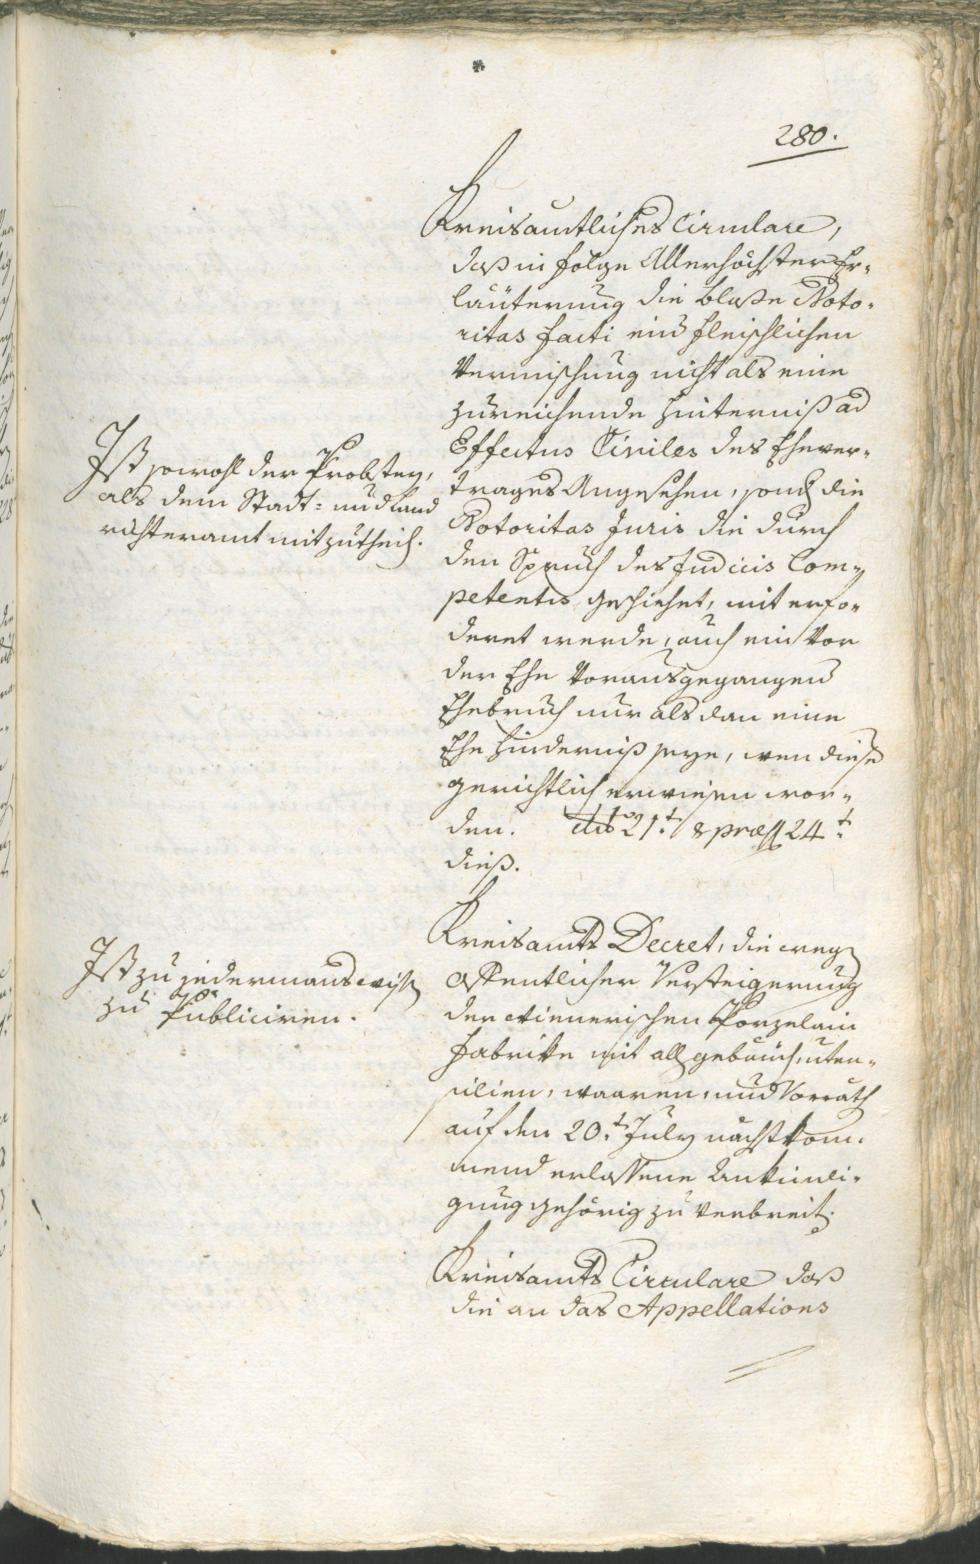 280.
Kreisamtliches Circulare,
daß in folge Allerhöchster Er-
läuterung die bloße Noto-
ritas facti einer fleischlichen
Vermischung nicht als eine
zureichende Hinterniß ad
Effectus Civiles des Ehever-
trages Angesehen, sond die
Notoritas Juris die durch
den Spruch des Judicis Com-
petentis geschiehet, mit erfo-
deret werde, auch ein Vor
der Ehe Vorausgegangener
Ehebruch nur als dan eine
Ehe Hinderniß seye, wen dieser
gerichtlich erwiesen wor-
den. dto 21t & præs 24t
dieß.
Ist sowohl der Probstey,
als dem Stadt- und Land
richteramt mitzutheil.
Kreisamts Decret, die weg
offentlicher Versteigerung
der wienerischen Porzelain
Fabrike mit all gebäud, uten-
silien, waaren, und Vorrath
auf den 20.t July nächstkom-
mend erlassene Ankündi-
gung gehörig zu verbreit.
Ist zu jedermans wissen
zu Publiciren.
Kreisamts Circulare daß
die an das Appellations